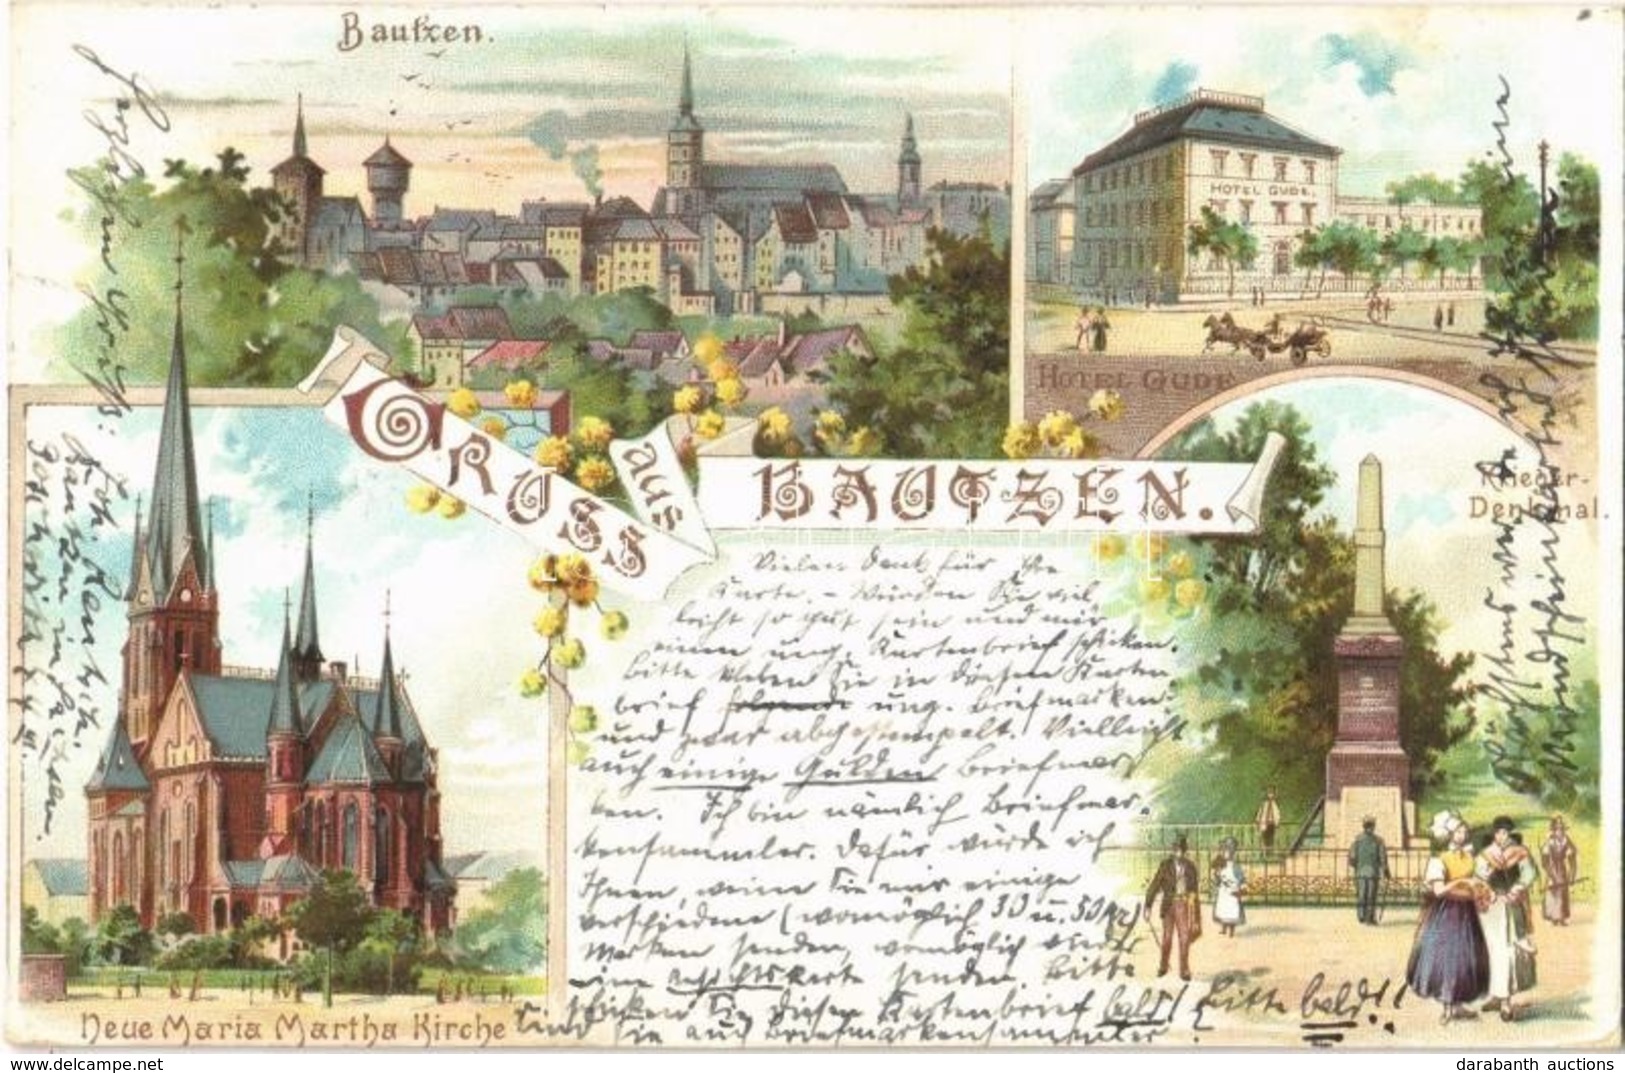 Bautzen.
HOTEL GUDE.
HOTEL GUDE
GRUSS aus BAUTZEN.
Krieger-
Denkmal.
Vielen Dank für Ihre
Karte. – Würden Sie viel
leicht so gut sein und mir
einen ung. Kartenbrief schicken.
bitte kleben Sie in diesen Karten
brief ung. Briefmarken
und zwar abgestempelt. Vielleicht
auch einige Gulden Briefmar
ken. Ich bin nämlich Briefmar-
kensammler. Dafür würde ich
Ihnen, wenn Sie mir einige
verschiedene (womöglich 30 u. 50 Kr)
Marken senden, womöglich wieder
eine Ansichtskarte senden. Bitte
schicken Sie diesen Kartenbrief bald! bitte bald!!
Sind Sie auch Briefmarkensammler?
Neue Maria Martha Kirche
Bautzen in Sachsen.
darabanth auctions